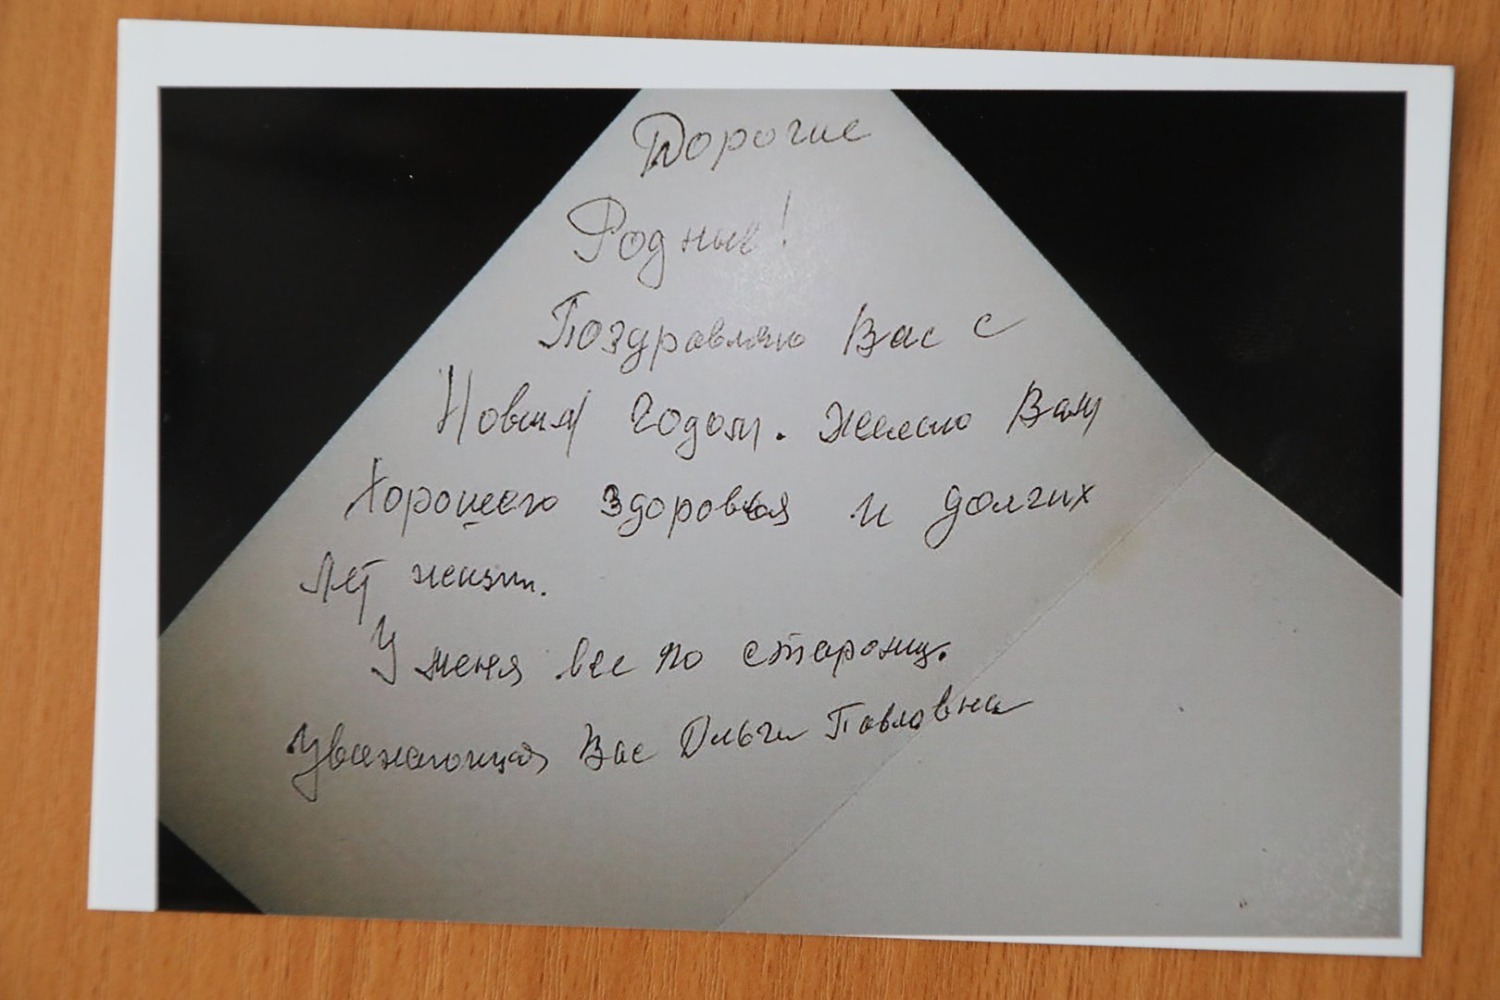 Дорогие
Родные!
Поздравляю Вас с
Новым годом. Желаю Вам
Хорошего здоровья и долгих
лет жизни.
У меня все по старому.
Уважающая Вас Ольга Павловна